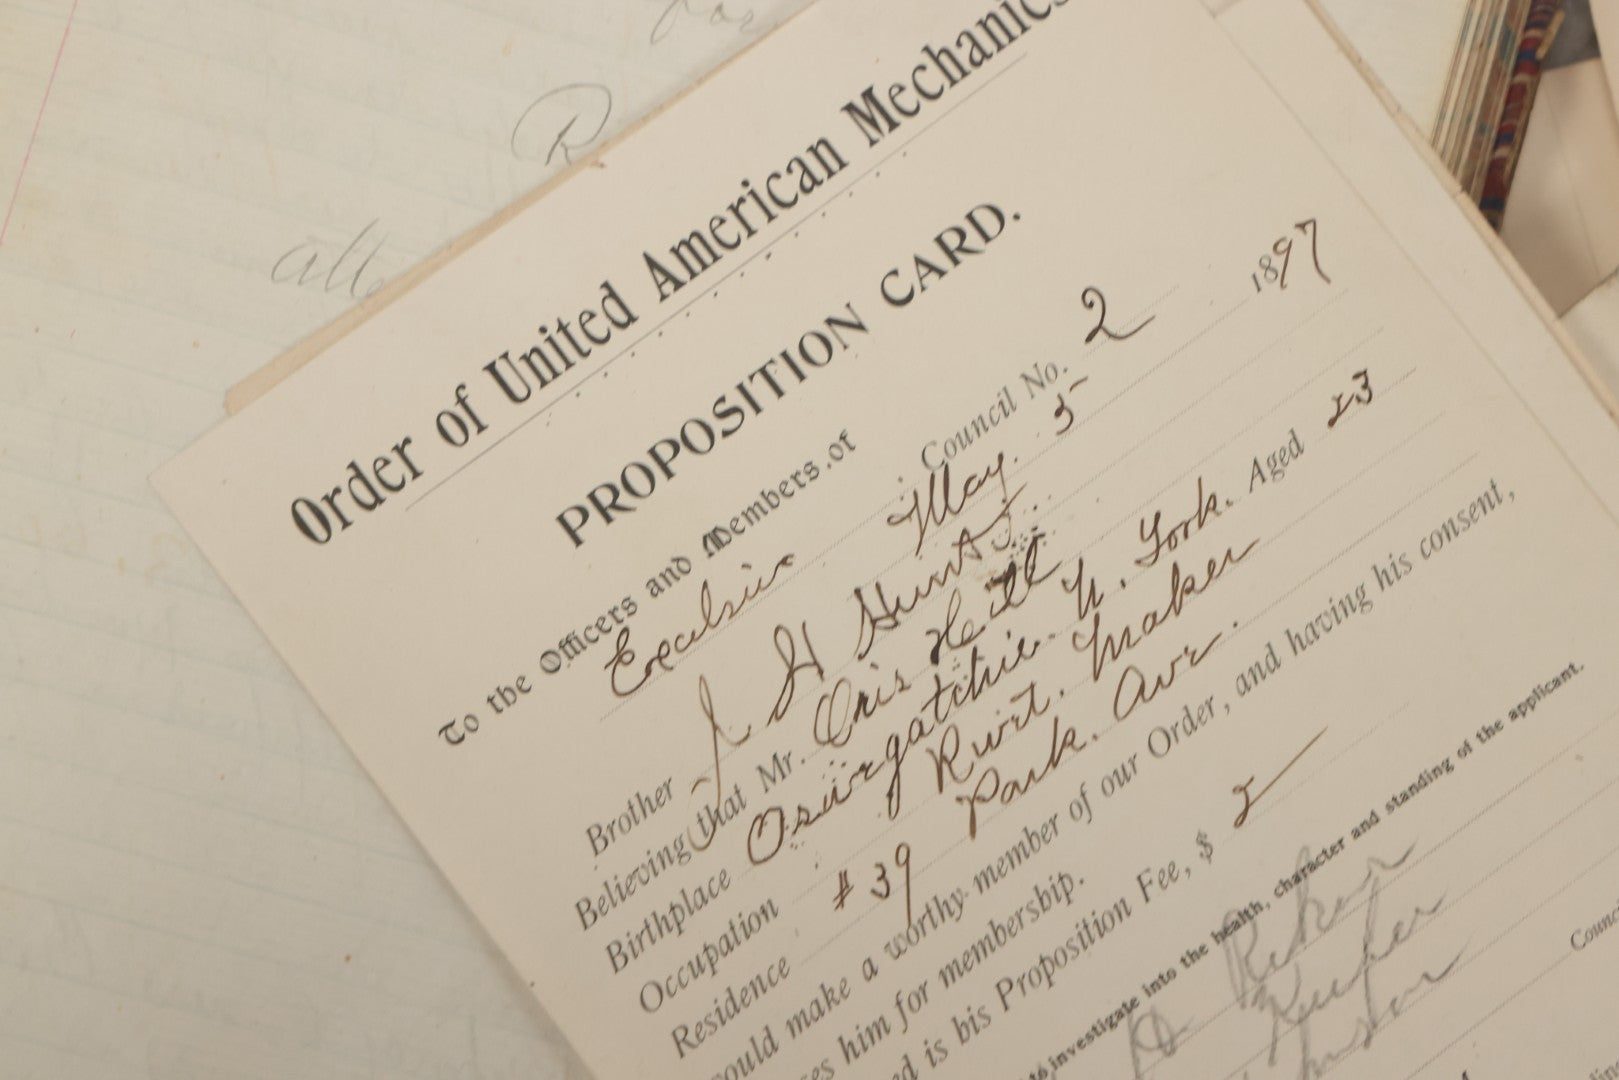 Order of United American Mechanics
PROPOSITION CARD.
To the Officers and Members of
Excelsior Council No. 2
May. 5 1897
Brother J H Hunt
Believing that Mr. Oris Hill Aged 23
Birthplace Oswegatchie. N. York.
Occupation Rivit. Maker
Residence # 39 Park. Ave.
would make a worthy member of our Order, and having his consent,
es him for membership.
ed is his Proposition Fee, $ 2
to investigate into the health, character and standing of the applicant.
Counci
all
R